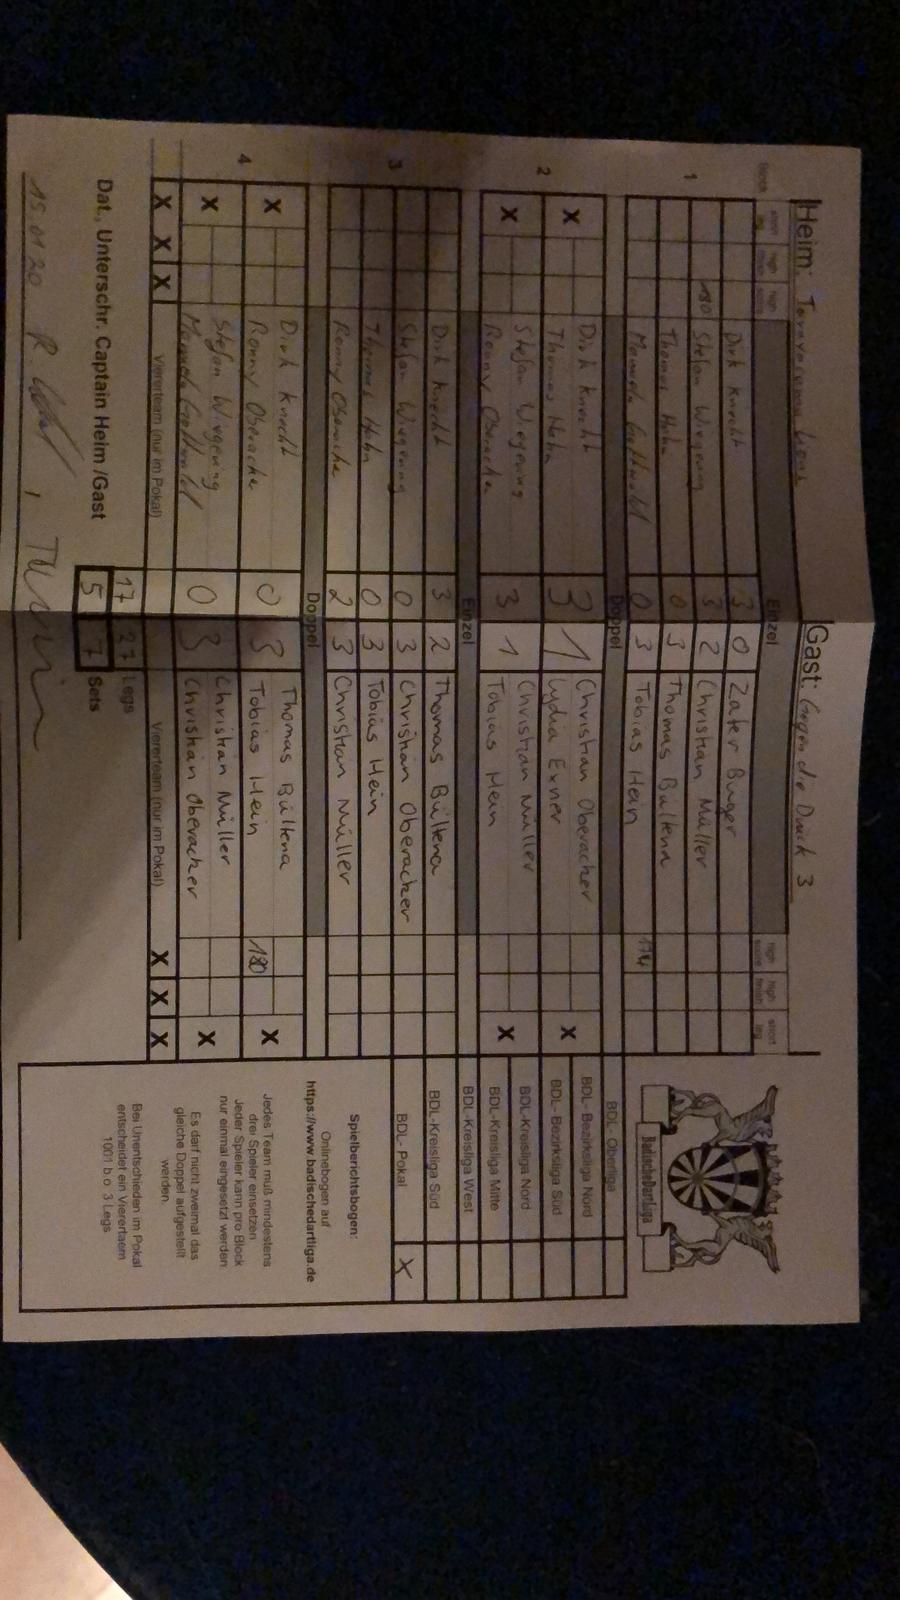 Heim: Gast: Gegen die Duck 3
block short leg high finish high score Einzel high score high finish short leg
1 Dirk Knecht 3 0 Zafer Bucher
180 Stefan Wiegering 3 2 Christian Müller
Thomas Hahn 0 3 Thomas Bültena
Manuela 0 3 Tobias Hein 174
Doppel
2 X Dirk Knecht 3 1 Christian Oberacker X
Thomas Hahn Lydia Exner
X Stefan Wiegering 3 1 Christian Müller X
Ronny Oberacker Tobias Hein
Einzel
3 Dirk Knecht 3 2 Thomas Bültena
Stefan Wiegering 0 3 Christian Oberacker
Thomas Hahn 0 3 Tobias Hein
Ronny Oberacker 2 3 Christian Müller
Doppel
4 X Dirk Knecht 0 3 Thomas Bültena X
Ronny Oberacker Tobias Hein 180
X Stefan Wiegering 0 3 Christian Müller X
Manuela Christian Oberacker
X X X Viererteam (nur im Pokal) Viererteam (nur im Pokal) X X X
17 27 Legs
Dat., Unterschr. Captain Heim /Gast 5 7 Sets
15.01.20
BadischeDartliga
BDL-Oberliga
BDL- Bezirksliga Nord
BDL- Bezirksliga Süd
BDL-Kreisliga Nord
BDL-Kreisliga Mitte
BDL-Kreisliga West
BDL-Kreisliga Süd
BDL- Pokal X
Spielberichtsbogen:
Onlinebogen auf
https://www.badischedartliga.de
Jedes Team muß mindestens
drei Spieler einsetzen
Jeder Spieler kann pro Block
nur einmal eingesetzt werden
Es darf nicht zweimal das
gleiche Doppel aufgestellt
werden.
Bei Unentschieden im Pokal
entscheidet ein Viererteam
1001 b.o. 3 Legs